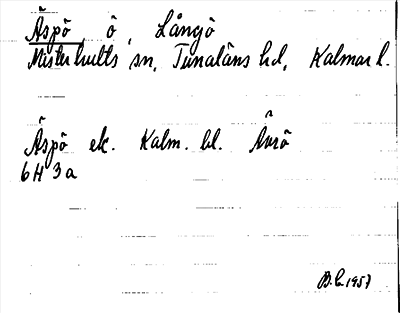 Äspö, ö, Långö
Misterhults sn, Tunaläns hd, Kalmar l.
Äspö ek. Kalm. bl. Ävrö
6H 3a
B.C. 1957